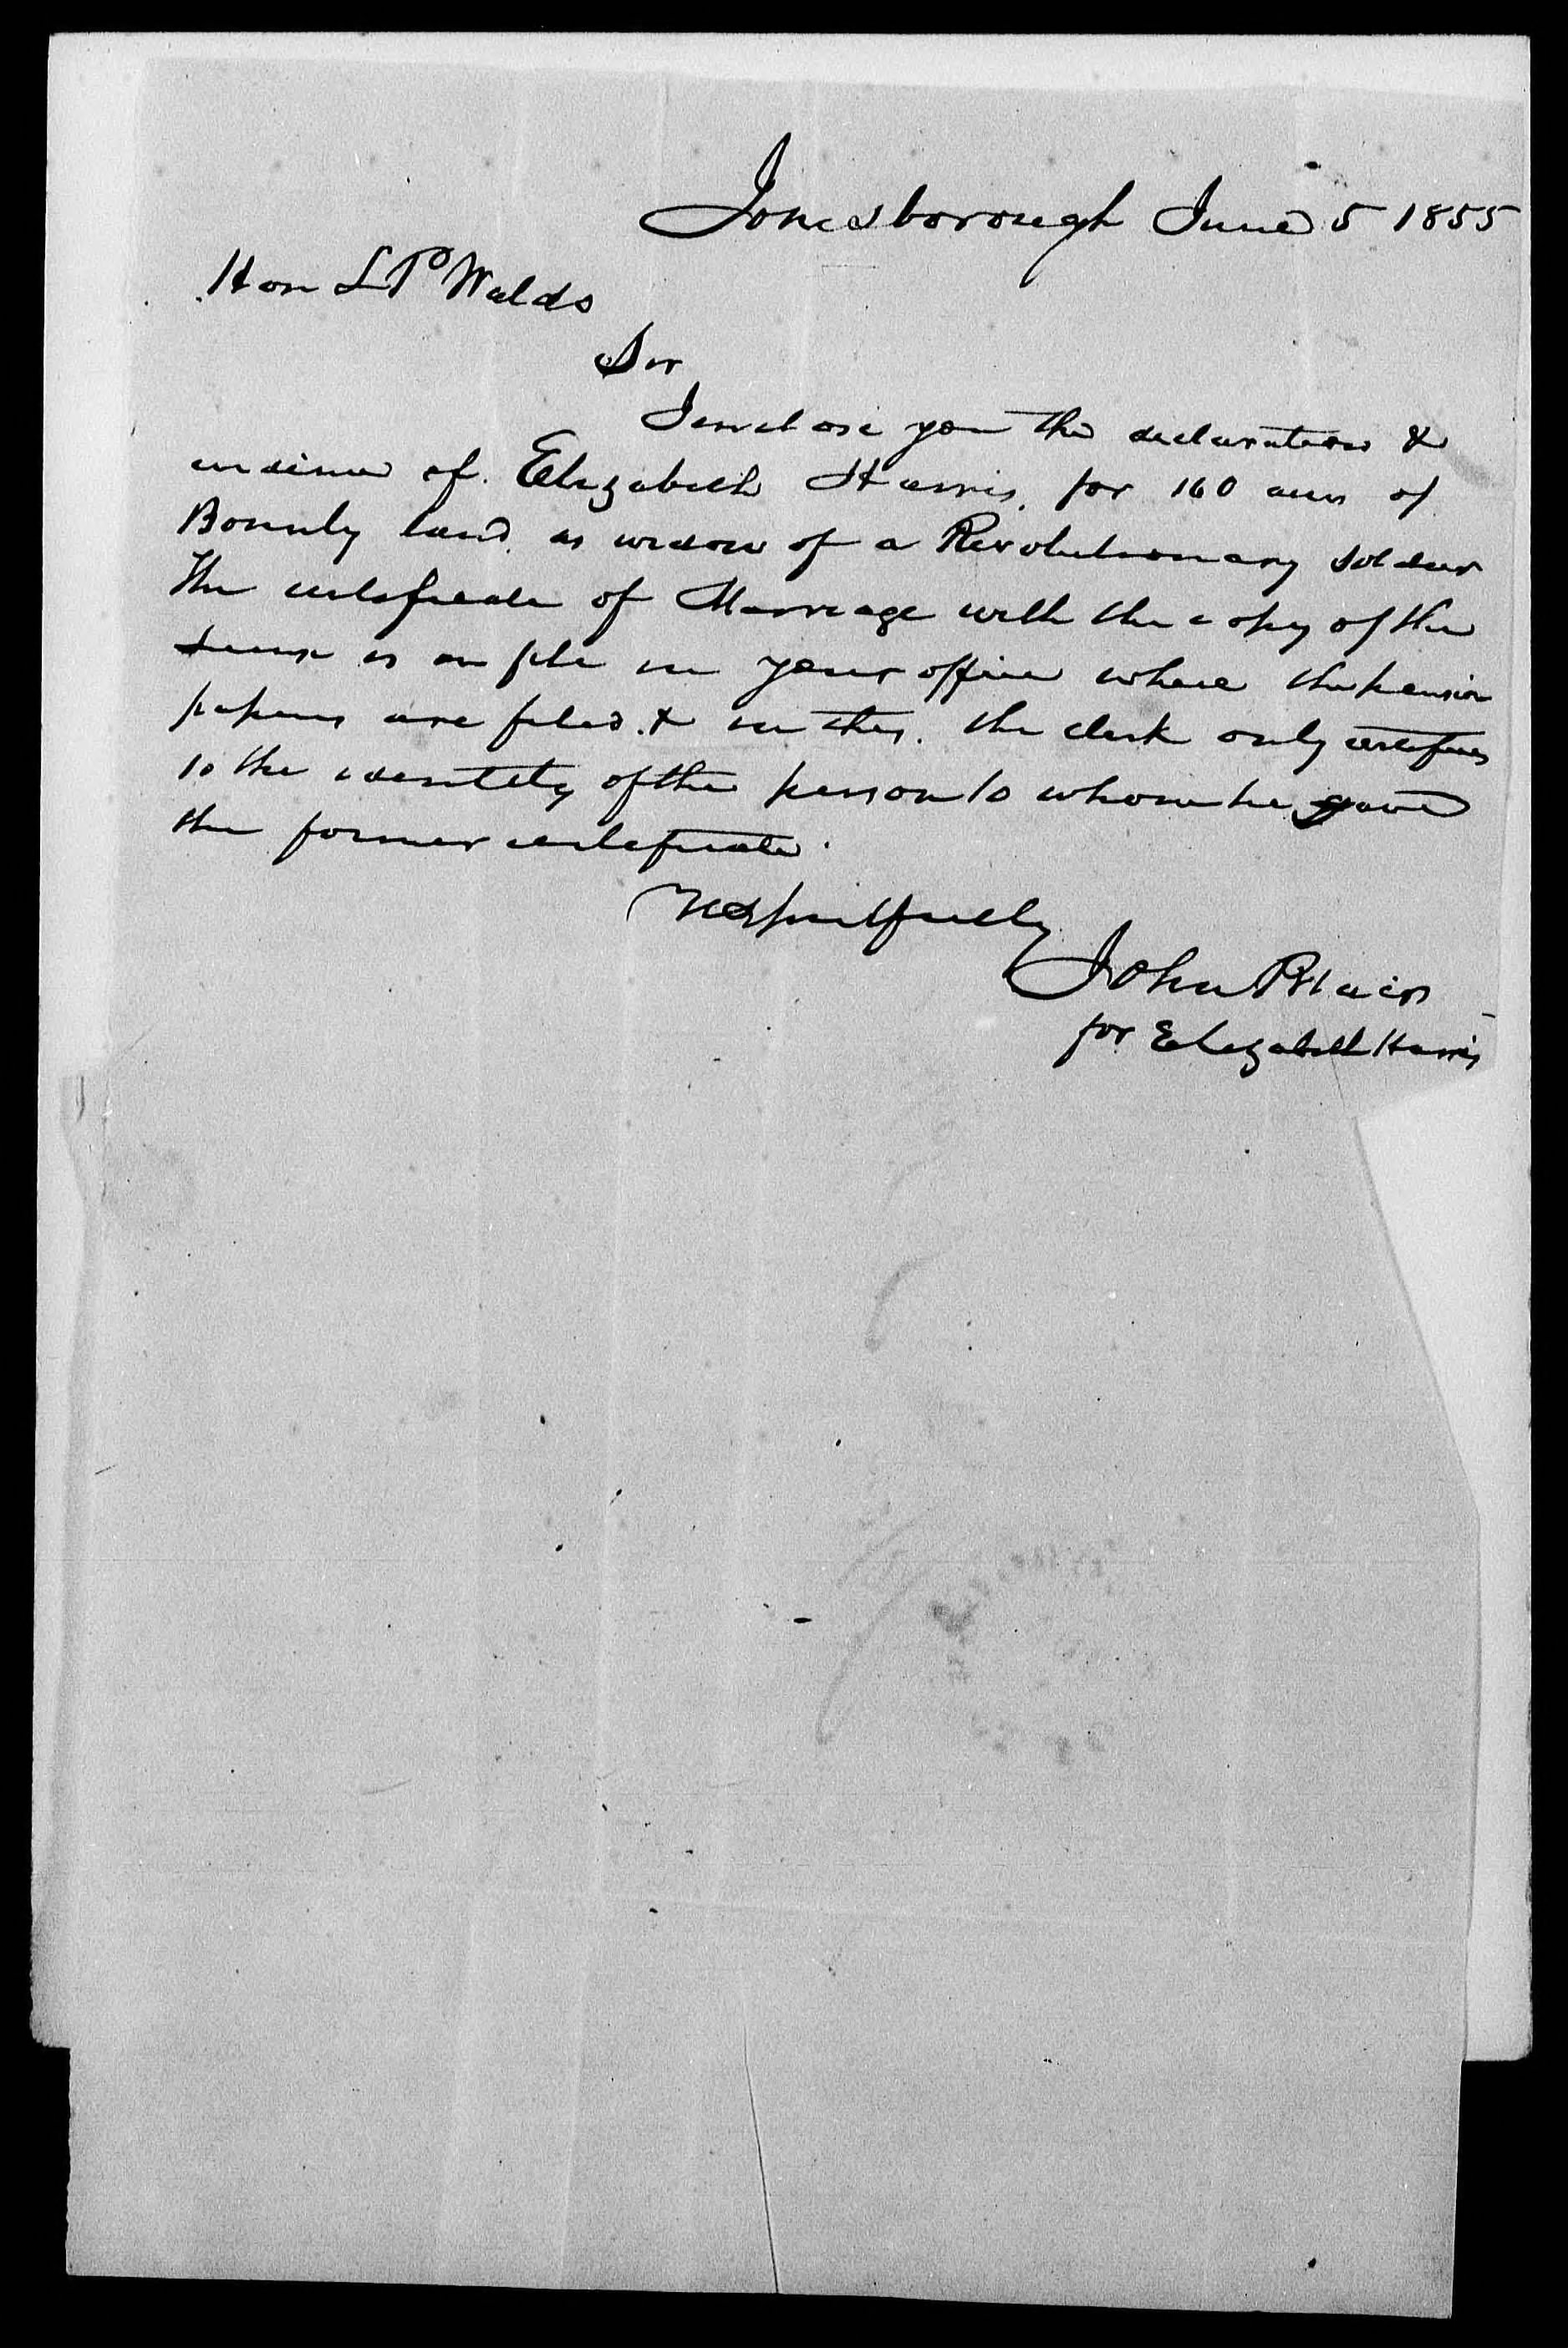 Jonesborough June 5 1855
Hon L P Waldo
Sir
I enclose you the declaration &
evidence of Elizabeth Harris, for 160 acres of
Bounty land, as widow of a Revolutionary soldier
The certificate of Marriage with the copy of the
is on file in your office where the pension
papers are filed. & in this. the clerk only certifies
to the identity of the person to whom he gave
the former certificate.
Respectfully
John Blair
for Elizabeth Harris